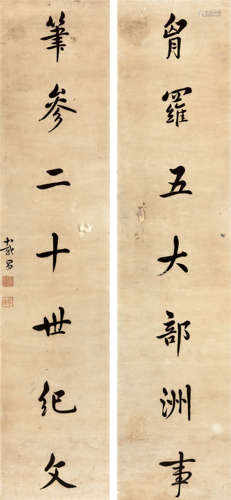 胷羅五大部洲事
筆參二十世紀文